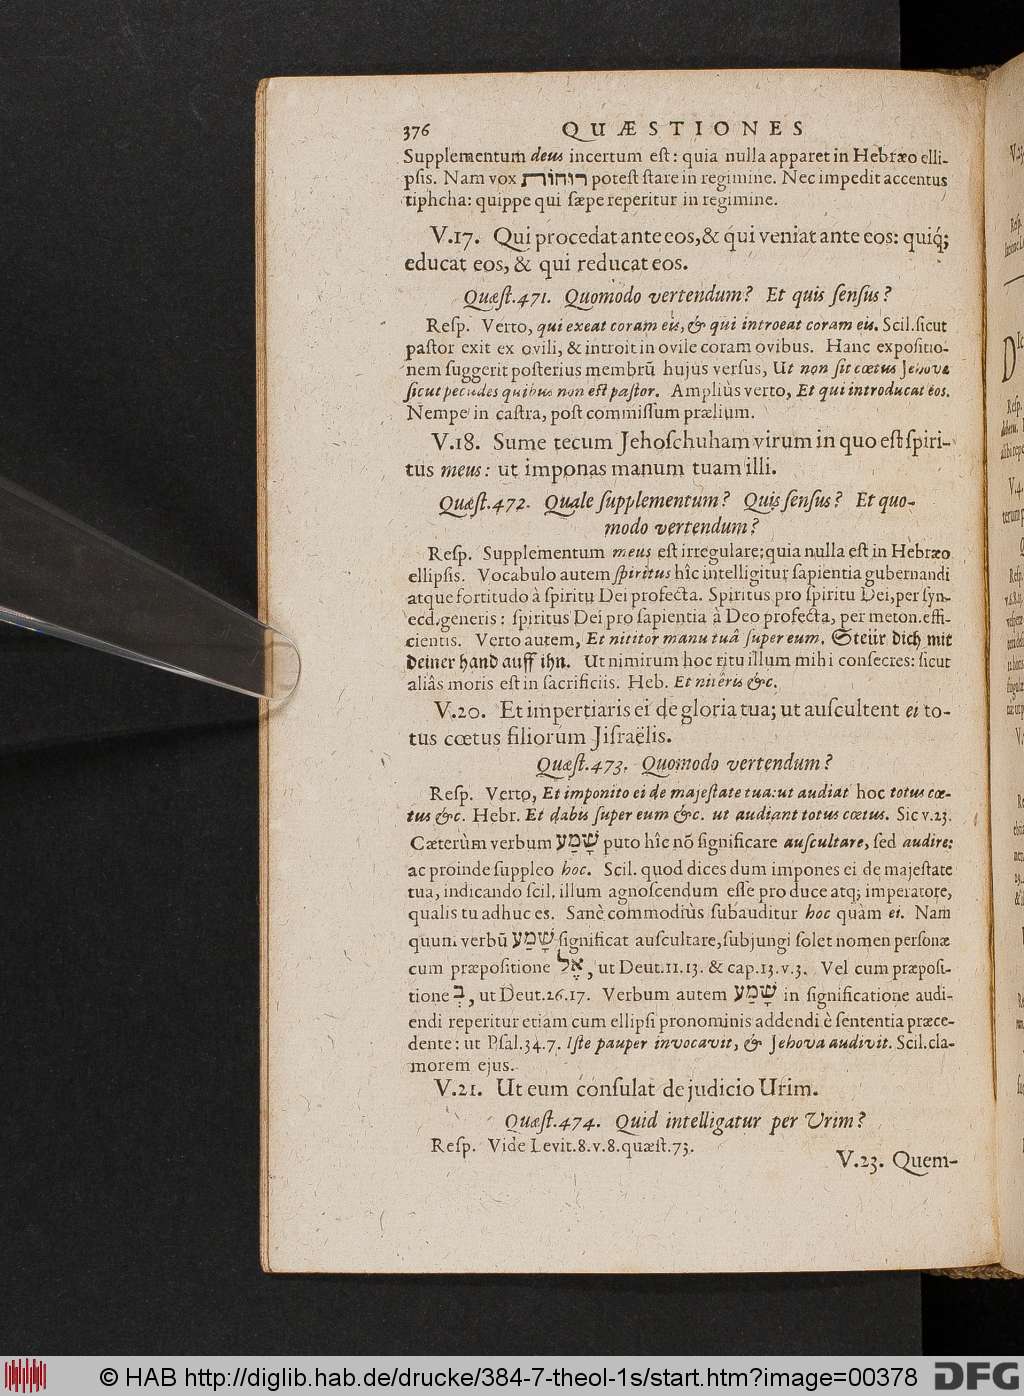 376 QUÆSTIONES
Supplementum deus incertum eſt: quia nulla apparet in Hebræo elli-
pſis. Nam vox רוּחוֹת poteſt ſtare in regimine. Nec impedit accentus
tiphcha: quippe qui ſæpe reperitur in regimine.
V.17. Qui procedat ante eos, & qui veniat ante eos: quiq́;
educat eos, & qui reducat eos.
Quæſt.471. Quomodo vertendum? Et quis ſenſus?
Reſp. Verto, qui exeat coram eis, & qui introeat coram eis. Scil. ſicut
paſtor exit ex ovili, & introit in ovile coram ovibus. Hanc expoſitio-
nem ſuggerit poſterius membrũ hujus verſus, Ut non ſit cœtus Jehovæ
ſicut pecudes quibus non eſt paſtor. Ampliùs verto, Et qui introducat eos.
Nempe in caſtra, poſt commiſſum prælium.
V.18. Sume tecum Jehoſchuham virum in quo eſt ſpiri-
tus meus: ut imponas manum tuam illi.
Quæſt.472. Quale ſupplementum? Quis ſenſus? Et quo-
modo vertendum?
Reſp. Supplementum meus eſt irregulare; quia nulla eſt in Hebræo
ellipſis. Vocabulo autem ſpiritus hîc intelligitur ſapientia gubernandi
atque fortitudo à ſpiritu Dei profecta. Spiritus pro ſpiritu Dei, per ſyn-
ecd. generis: ſpiritus Dei pro ſapientia à Deo profecta, per meton. effi-
cientis. Verto autem, Et nititor manu tuâ ſuper eum. Steür dich mit
deiner hand auff ihn. Ut nimirum hoc ritu illum mihi conſecres: ſicut
aliâs moris eſt in ſacrificiis. Heb. Et nitêris &c.
V.20. Et impertiaris ei de gloria tua; ut auſcultent ei to-
tus cœtus filiorum Jiſraëlis.
Quæſt.473. Quomodo vertendum?
Reſp. Verto, Et imponito ei de majeſtate tua: ut audiat hoc totus cœ-
tus &c. Hebr. Et dabis ſuper eum &c. ut audiant totus cœtus. Sic v.23.
Cæterùm verbum שָׁמַע puto hîc nõ ſignificare auſcultare, ſed audire:
ac proinde ſuppleo hoc. Scil. quod dices dum impones ei de majeſtate
tua, indicando ſcil. illum agnoſcendum eſſe pro duce atq; imperatore,
qualis tu adhuc es. Sanè commodiùs ſubauditur hoc quàm ei. Nam
quum verbũ שָׁמַע ſignificat auſcultare, ſubjungi ſolet nomen perſonæ
cum præpoſitione אֶל, ut Deut.11.13. & cap.13.v.3. Vel cum præpoſi-
tione בְּ, ut Deut.26.17. Verbum autem שָׁמַע in ſignificatione audi-
endi reperitur etiam cum ellipſi pronominis addendi è ſententia præce-
dente: ut Pſal.34.7. Iſte pauper invocavit, & Jehova audivit. Scil. cla-
morem ejus.
V.21. Ut eum conſulat de judicio Urim.
Quæſt.474. Quid intelligatur per Urim?
Reſp. Vide Levit.8.v.8.quæſt.73.
V.23. Quem-
© HAB http://diglib.hab.de/drucke/384-7-theol-1s/start.htm?image=00378
DFG